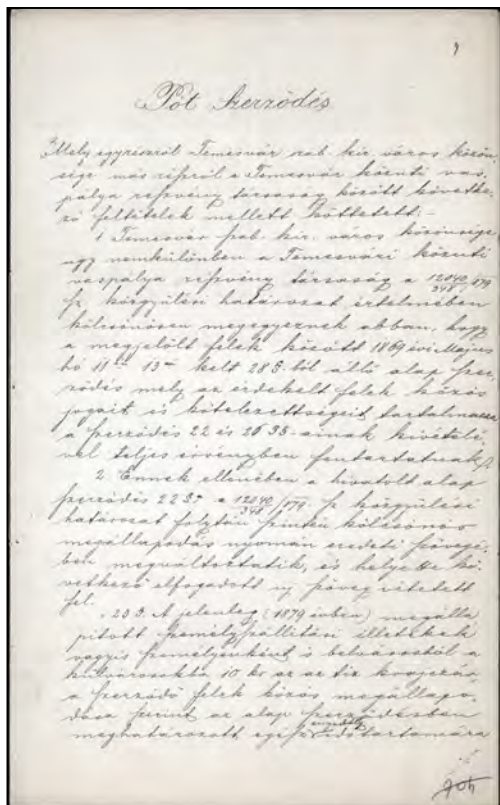 Pót Szerződés
Mely egyrészről Temesvár szab. kir. város közön-
sége más részről a Temesvár közúti vas-
pálya részvény társaság között követke-
ző feltételek mellett köttetett:-
1 Temesvár szab. kir. város közönsége
úgy nemkülönben a Temesvári közúti
vaspálya részvény társaság a 12040/348/879
sz közgyűlési határozat értelmében
kölcsönösen megegyeznek abban, hogy
a megjelölt felek között 1869 évi Majus
hó 11én 13án kelt 28§-ból álló alap szer-
ződés mely az érdekelt felek közös
jogait és kötelezettségeit tartalmazza
a szerződés 22 és 26 §§-ainak kivételé-
vel teljes érvényben fentartatnak
2 Ennek ellenében a hivatolt alap
szerződés 22§ a 12040/348/879 sz közgyűlési
határozat folytán szintén kölcsönös
megállapodás nyomán eredeti szövegé-
ben megváltoztatik, és helyette kö-
vetkező elfogadott uj szöveg vitetett
fel.
A jelenleg (1879 évben) megálla
pitott személyszállítási illetékek
vagyis személyenként is belvárostól a
külvárosokba 10 kr az az tiz krajczár,
a szerződő felek közös megállapo-
dása szerint az alap szerződésben
meghatározott egész időtartamára